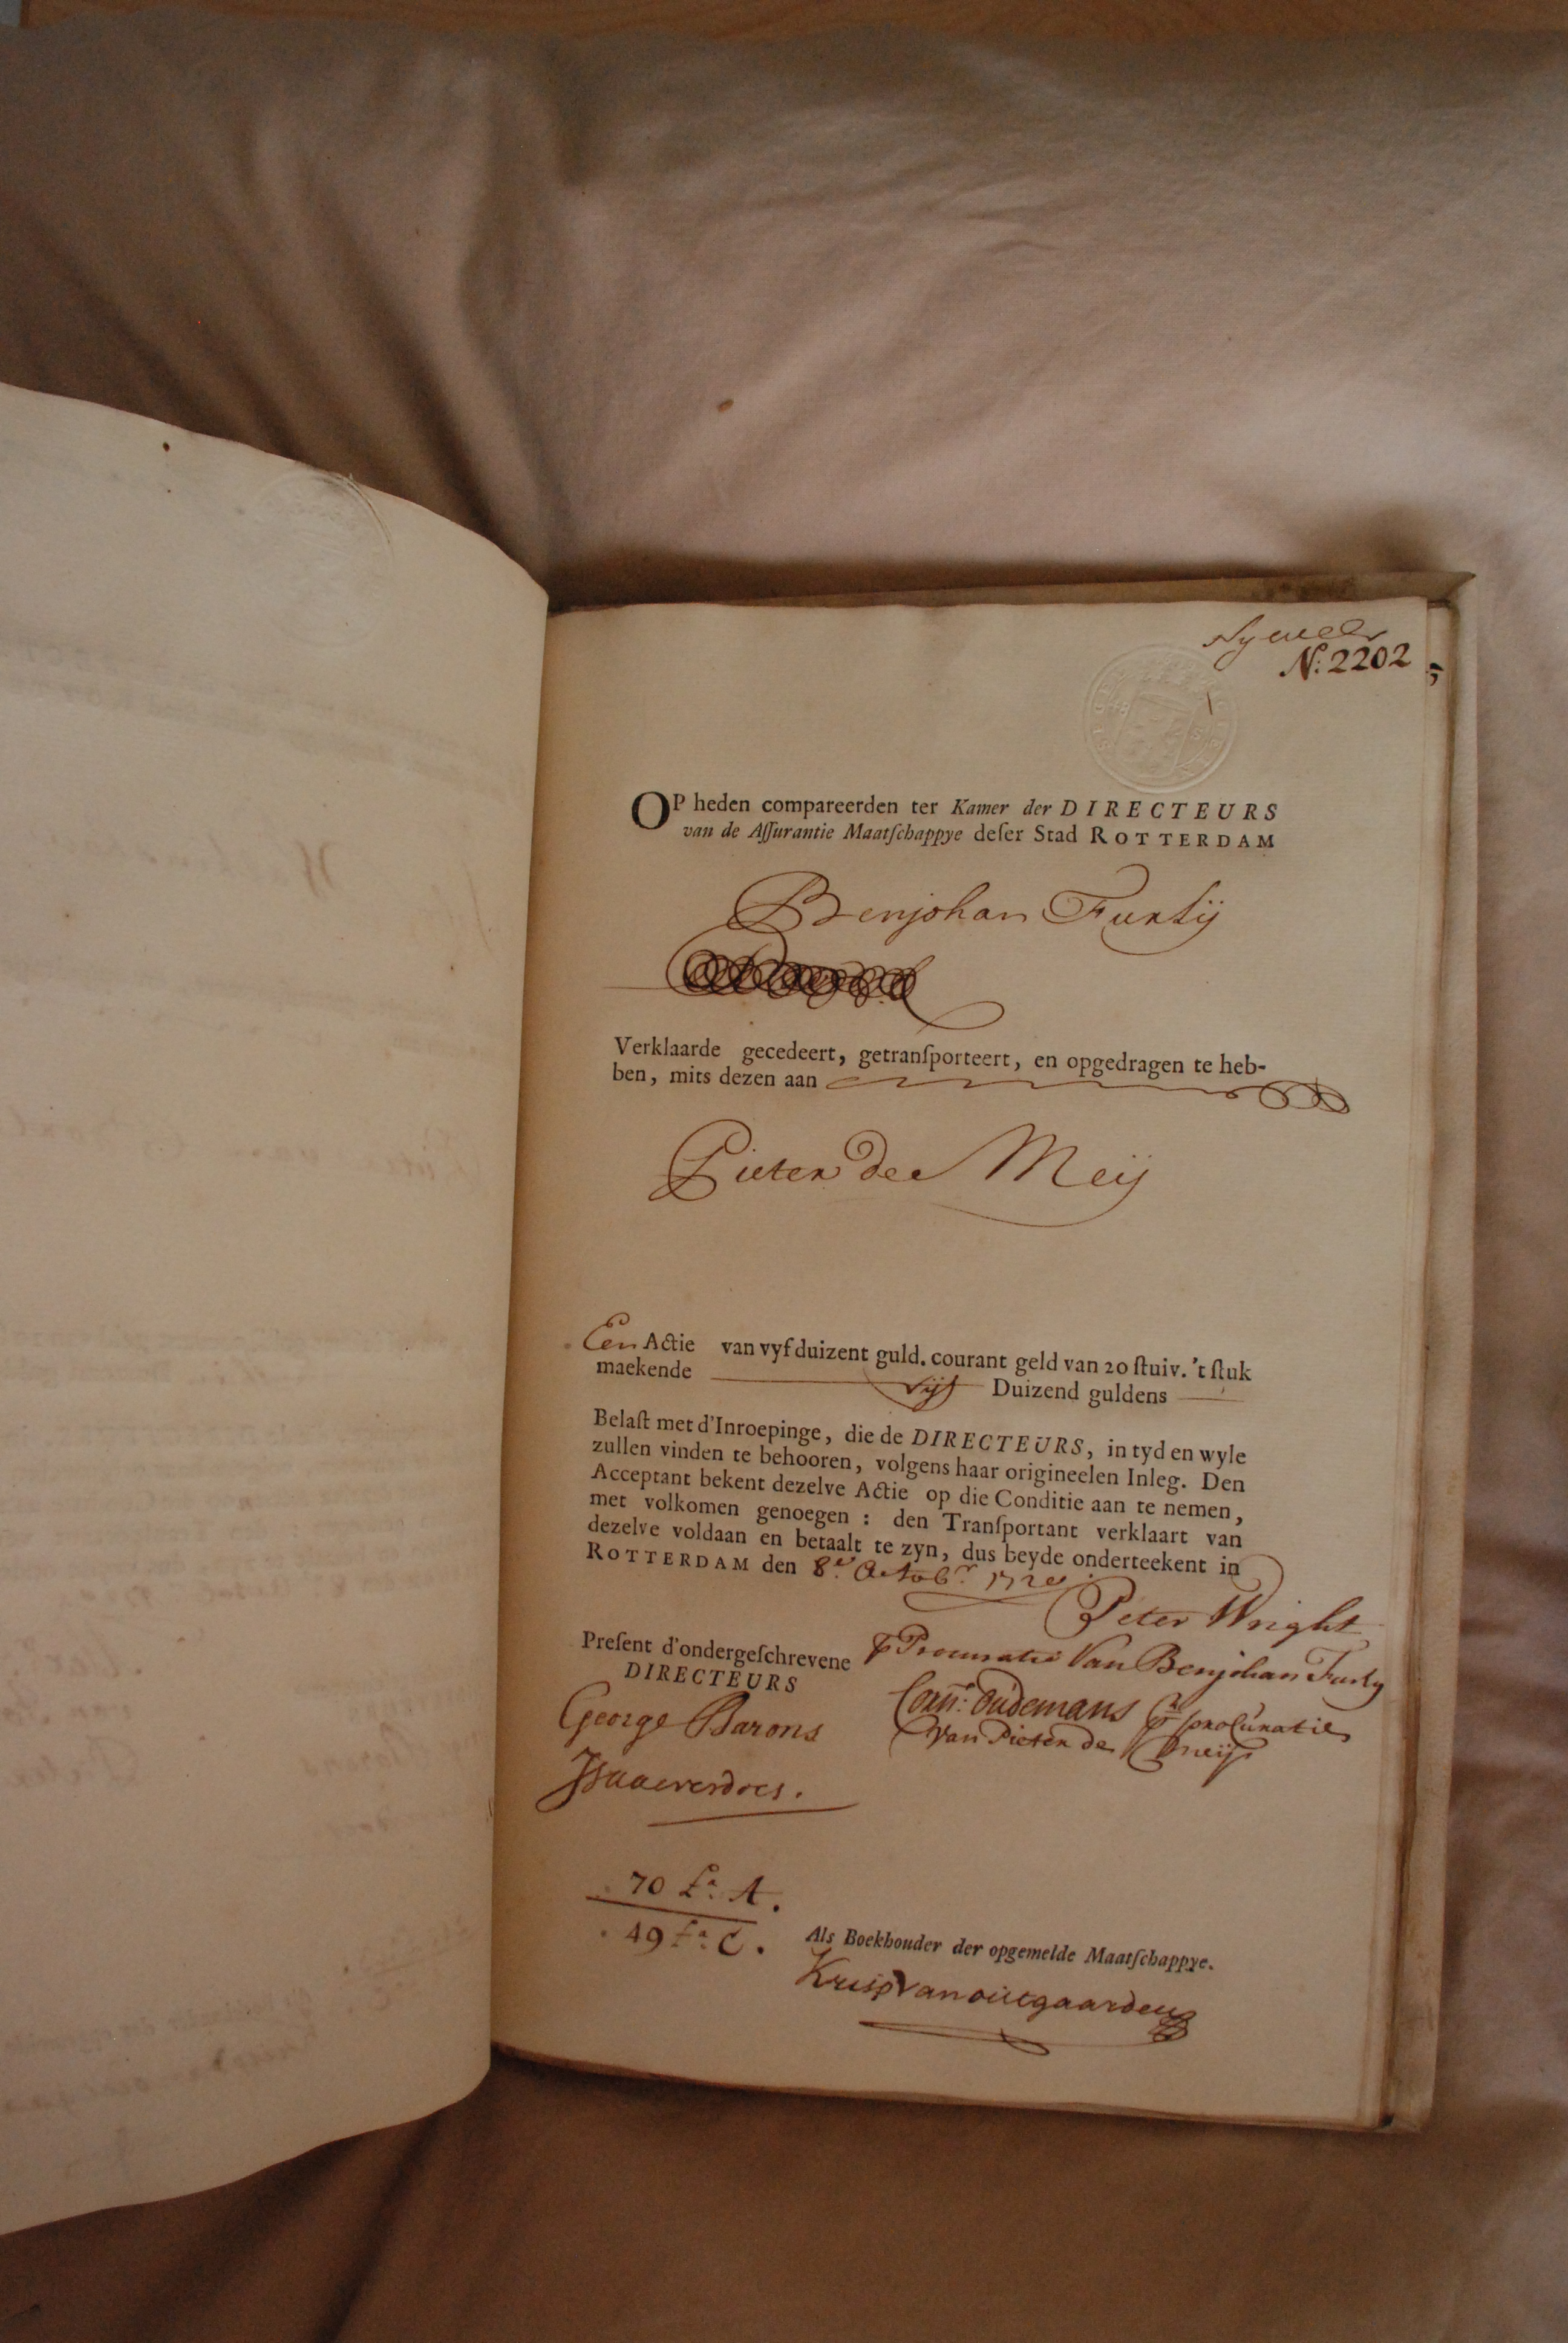 N: 2202
OP heden compareerden ter Kamer der DIRECTEURS
van de Aſſurantie Maatſchappye deſer Stad ROTTERDAM
Benjohan Furlÿ
Verklaarde gecedeert, getranſporteert, en opgedragen te heb-
ben, mits dezen aan
Pieter de Meÿ
Een Actie van vyf duizent guld. courant geld van 20 ſtuiv. 't ſtuk
maekende Vijf Duizend guldens
Belaſt met d'Inroepinge, die de DIRECTEURS, in tyd en wyle
zullen vinden te behooren, volgens haar origineelen Inleg. Den
Acceptant bekent dezelve Actie op die Conditie aan te nemen,
met volkomen genoegen : den Tranſportant verklaart van
dezelve voldaan en betaalt te zyn, dus beyde onderteekent in
ROTTERDAM den 8.e Octob.r 1720
Peter Wright
Preſent d'ondergeſchrevene
p Procuratie Van Benjohan Furly
DIRECTEURS
George Barons
Corn: Oudemans p procuratie
Van Pieter de Meij
70 L.a A.
49 L.a C.
Als Boekhouder der opgemelde Maatſchappye.